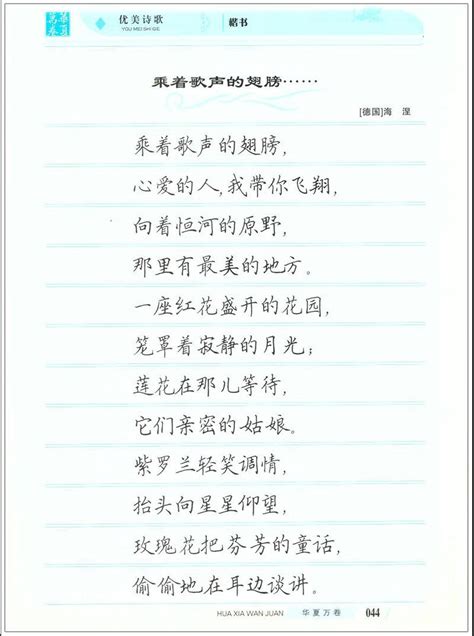 华夏万卷
优美诗歌
YOU MEI SHI GE
楷书
乘着歌声的翅膀……
[德国]海 涅
乘着歌声的翅膀,
心爱的人,我带你飞翔,
向着恒河的原野,
那里有最美的地方。
一座红花盛开的花园,
笼罩着寂静的月光;
莲花在那儿等待,
它们亲密的姑娘。
紫罗兰轻笑调情,
抬头向星星仰望,
玫瑰花把芬芳的童话,
偷偷地在耳边谈讲。
HUA XIA WAN JUAN 华夏万卷 044